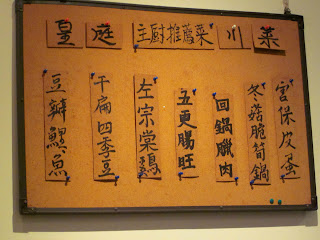 皇庭 主厨推薦菜 川菜
豆瓣 魚
干扁四季豆
左宗棠鷄
五更腸旺
回鍋臘肉
冬菇脆筍鍋
宮保皮蛋